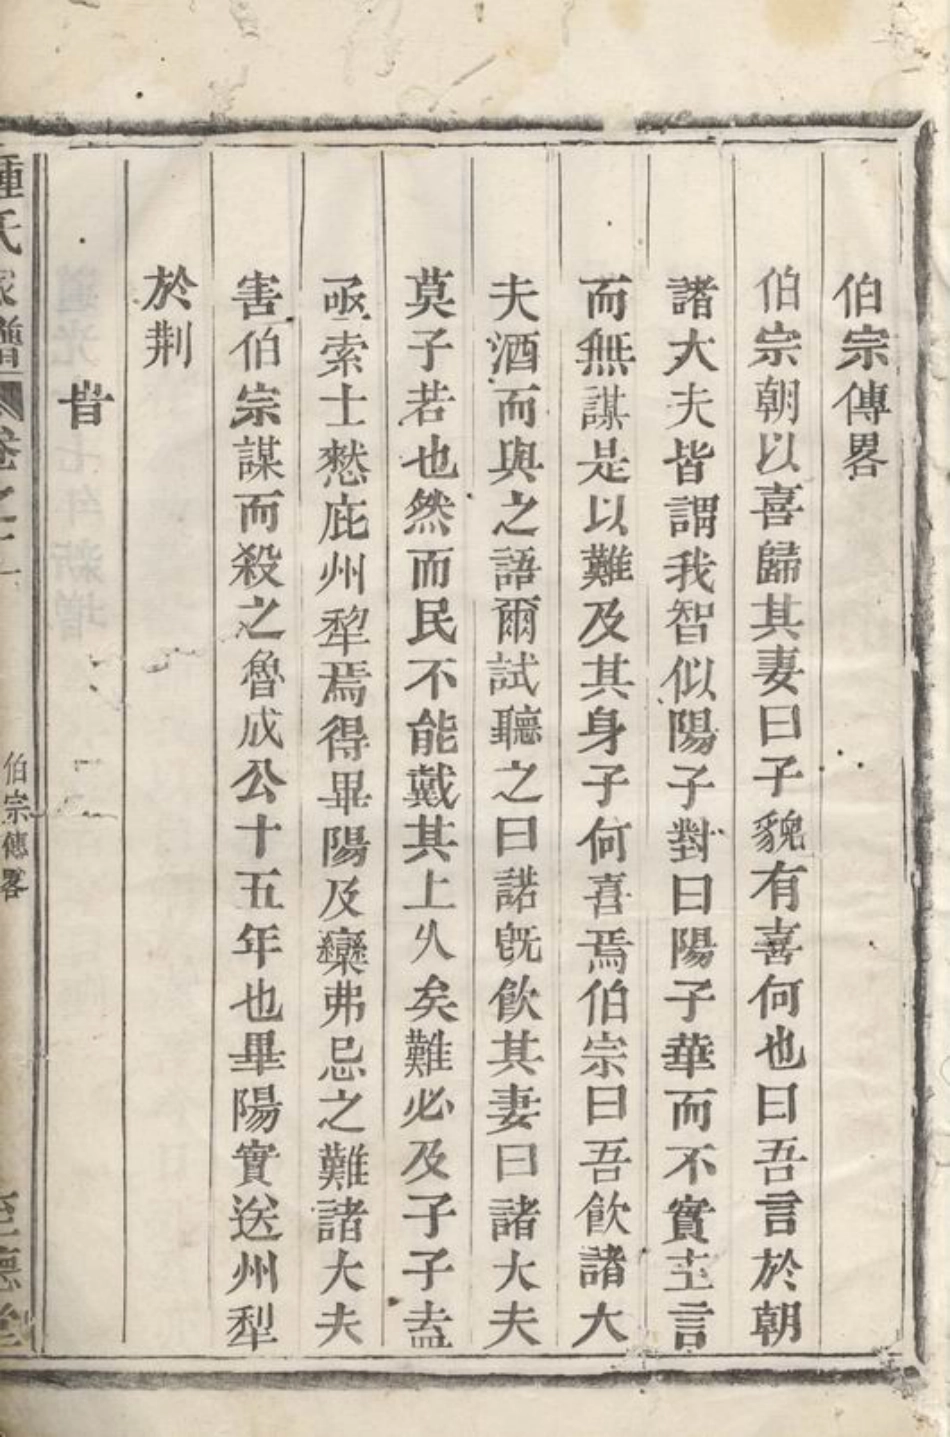 伯宗傳畧
伯宗朝以喜歸其妻曰子貌有喜何也曰吾言於朝
諸大夫皆謂我智似陽子對曰陽子華而不實主言
而無謀是以難及其身子何喜焉伯宗曰吾飲諸大
夫酒而與之語爾試聽之曰諾旣飲其妻曰諸大夫
莫子若也然而民不能戴其上久矣難必及子子盍
亟索士憖庇州犂焉得畢陽及欒弗忌之難諸大夫
害伯宗謀而殺之魯成公十五年也畢陽實送州犁
於荆
昔
鍾氏家譜 卷之一 伯宗傳畧 至德堂